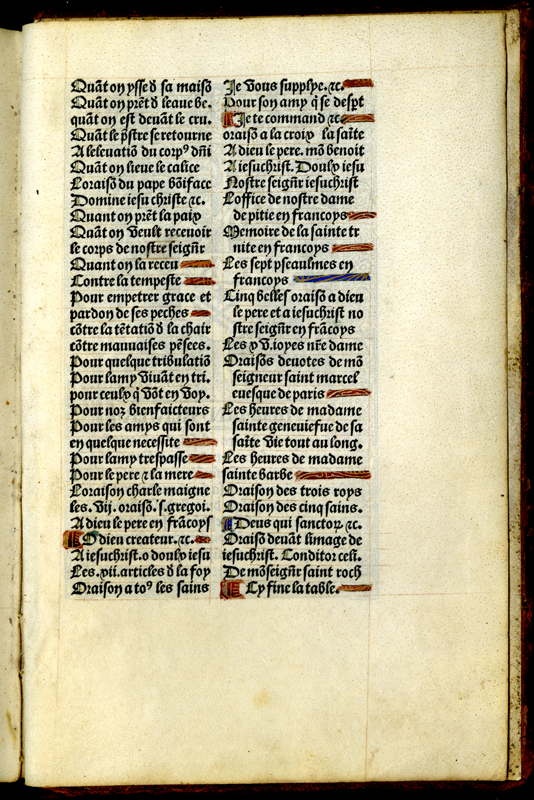 Quãt on ysse d̄ sa maisõ
Quãt on prẽt d̄ leaue be.
quãt on est deuãt le cru.
Quãt le p̃stre se retourne
A leleuatiõ du corpꝰ dñi
Quãt on lieue le calice
Loraisõ du pape bõiface
Domine iesu christe ⁊c.
Quant on prẽt la paix
Quãt on veult receuoir
le corps de nostre seigñr
Quant on la receu
Contre la tempeste
Pour empetrer grace et
pardon de ses peches
cõtre la tẽtatiõ d̄ la chair
cõtre mauuaises pẽsees.
Pour quelque tribulatiõ
Pour lamy viuãt en tri.
pour ceulx q̃ võt en voy.
Pour noz bienfaicteurs
Pour les amys qui sont
en quelque necessite
Pour lamy trespasse
Pour le pere ⁊ la mere
Loraison charle maigne
les. vij. oraisõ. s. gregoi.
A dieu le pere en frãcoys
O dieu createur. ⁊c.
A iesuchrist. o doulx iesu
Les. xii. articles d̄ la foy
Oraison a toꝰ les sains
Je vous supplye. ⁊c.
Pour son amy q̃ se desp̃t
Je te command ⁊c
oraisõ a la croix la saĩte
A dieu le pere. mõ benoit
A iesuchrist. Doulx iesu
Nostre seigñr iesuchrist
Loffice de nostre dame
de pitie en francoys
Memoire de la sainte tr
nite en francoys
Les sept pseaulmes en
francoys
Cinq belles oraisõ a dieu
le pere et a iesuchrist no
stre seigñr en frãcoys
Les x v. ioyes nr̃e dame
Oraisõs deuotes de mõ
seigneur saint marcel
euesque de paris
Les heures de madame
sainte geneuiefue de sa
saĩte vie tout au long.
Les heures de madame
sainte barbe
Oraison des trois roys
Oraison des cinq sains.
Deus qui sanctoꝝ ⁊c.
Oraisõ deuãt limage de
iesuchrist. Conditor celi.
De mõseigñr saint roch
Cy fine la table.